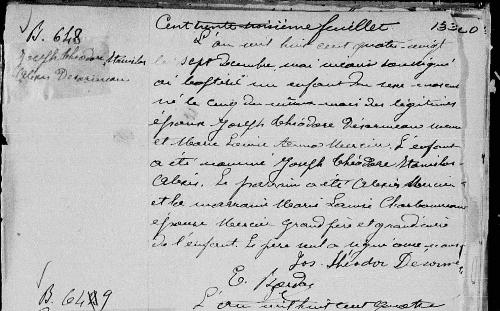 Cent trente troisième feuillet
B. 648
Joseph Théodore Stanislas
Alexis Desormeau
L'an mil huit cent quatre-vingt
le sept Décembre nous vicaire soussigné
ai baptisé un enfant du sexe mascu
né le cinq du même mois des légitimes
époux Joseph Théodore Désormeau
et Marie Louise Anna Mercier. L'enfant
a été nommé Joseph Théodore Stanislas
Alexis. Le parrain a été Alexis Mercier
et la marraine Marie Louise Charbonneau
épouse Mercier Grand père et grand'mère
de l'enfant. Le père seul a signé avec nous
Jos. Théodor Desorm
E.
B. 649
L'an mil huit cent quatre